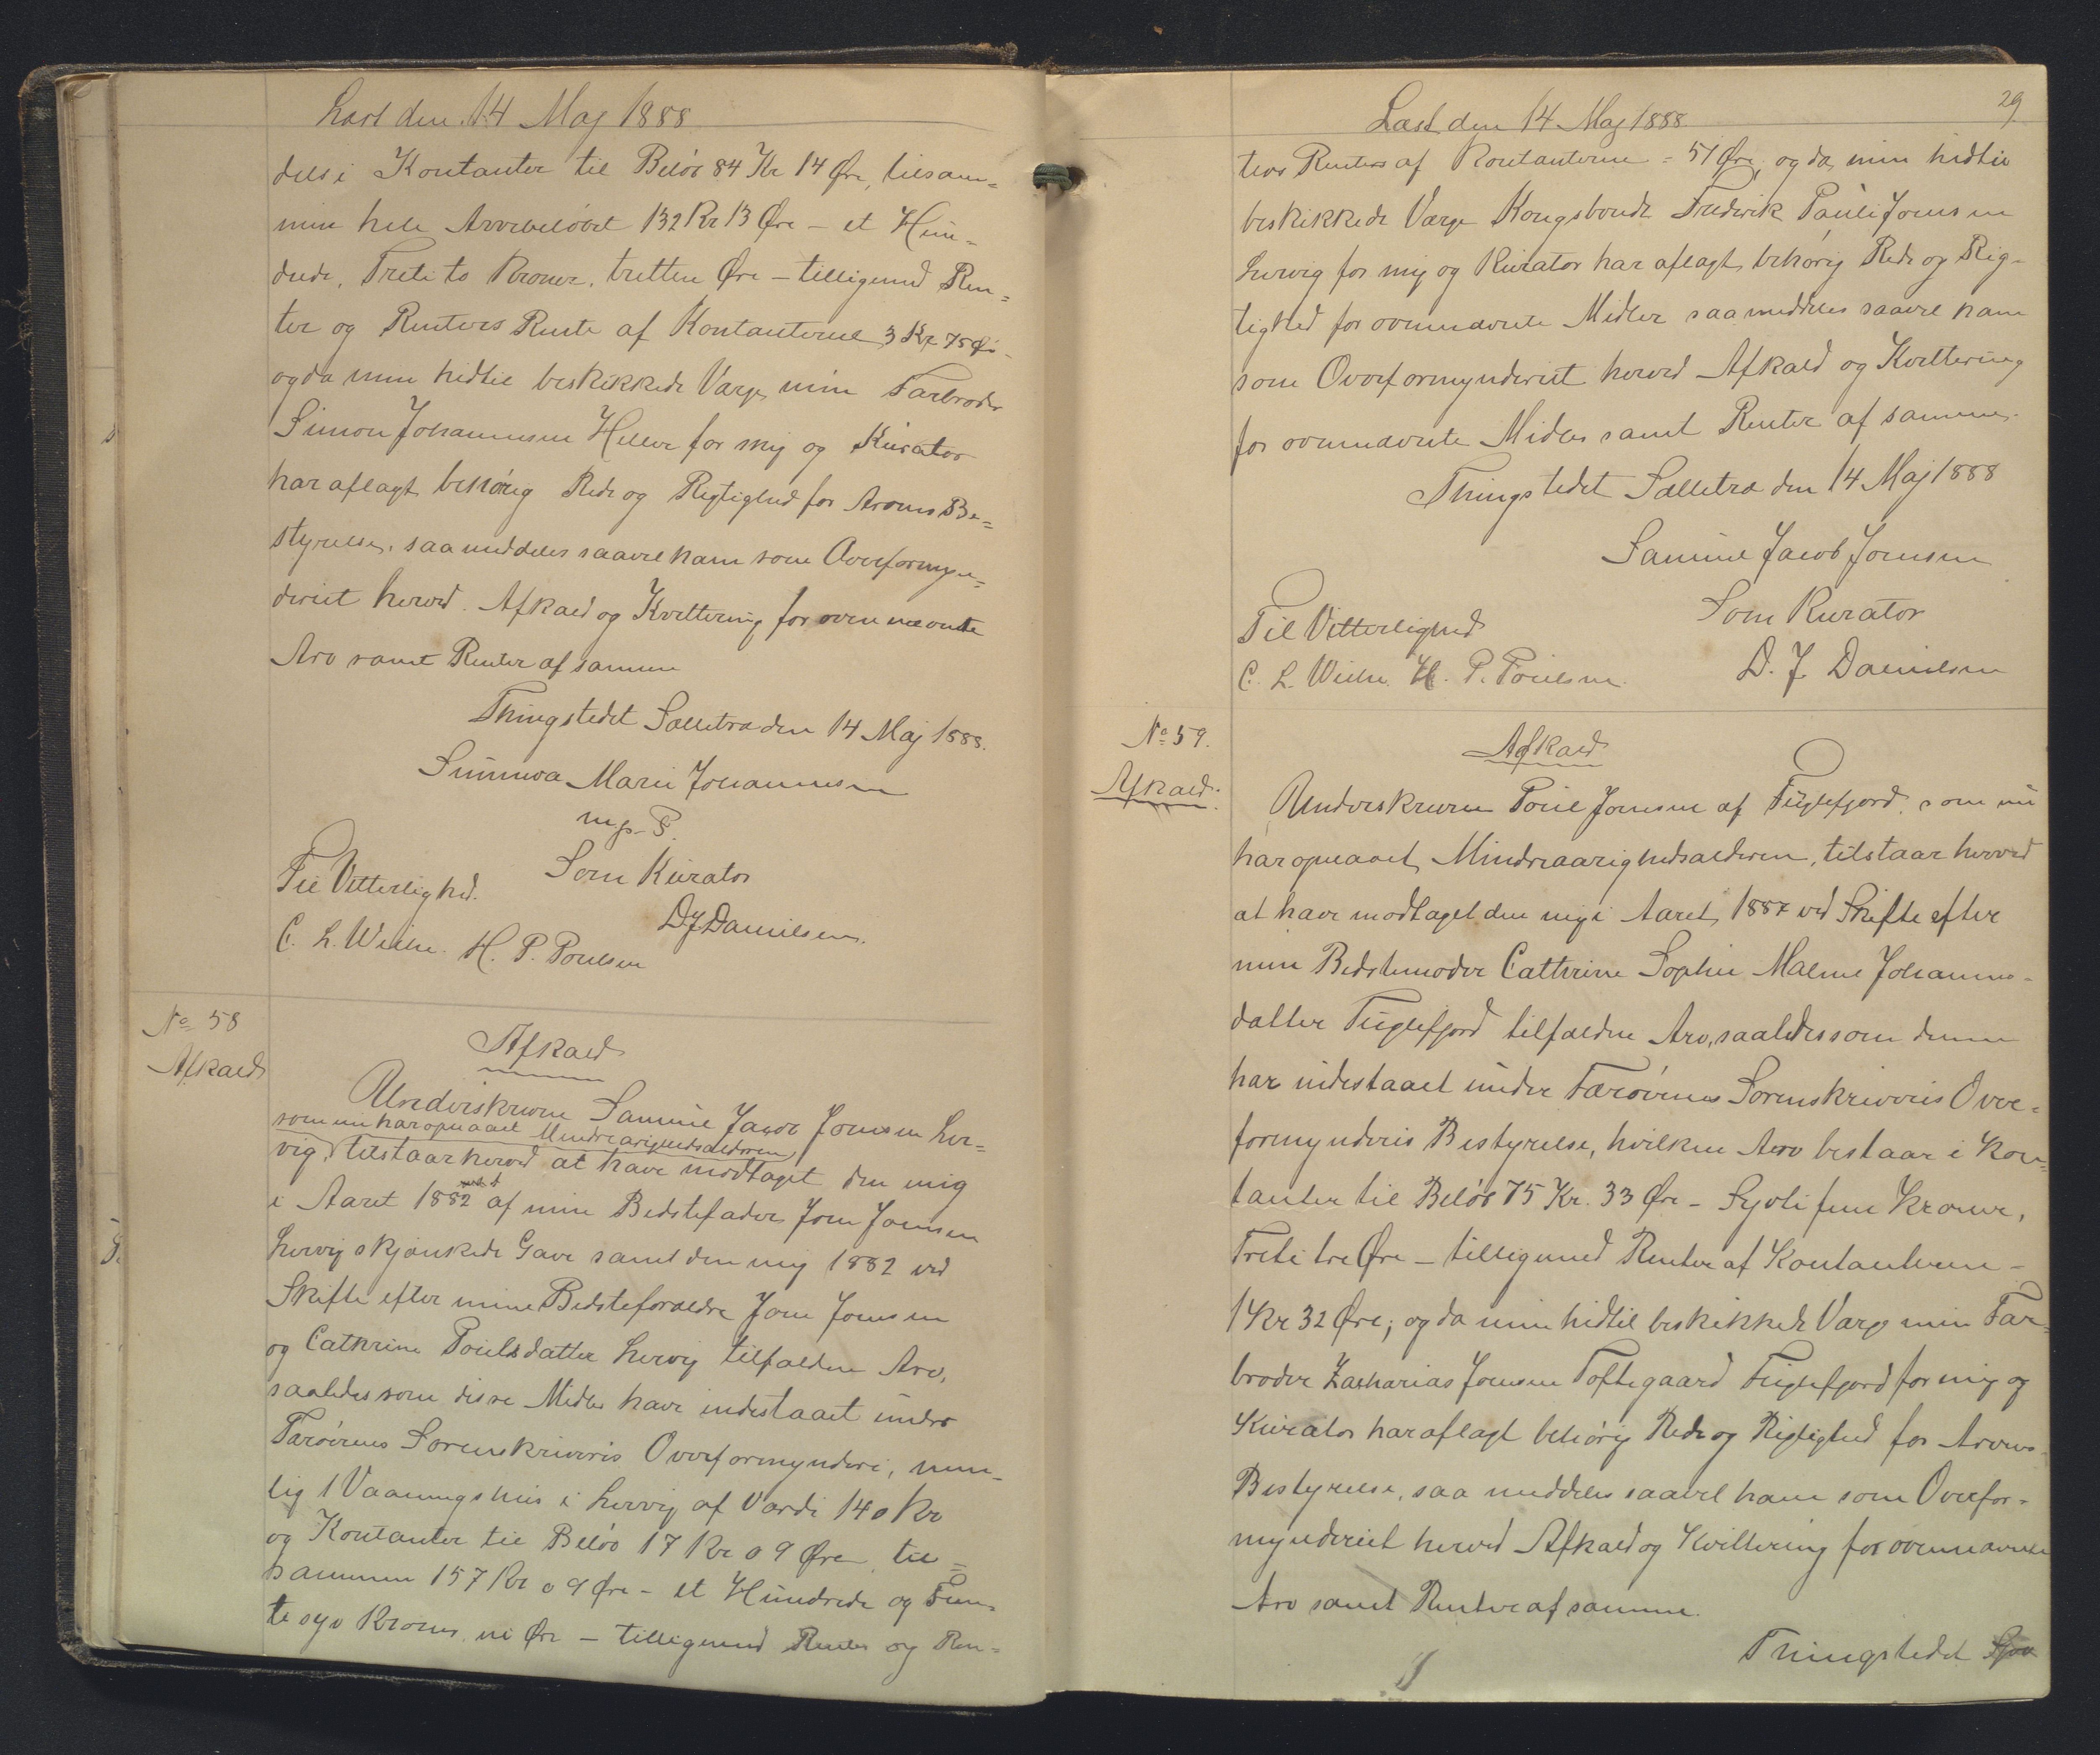 Læst den 14 Maj 1888
dels i Kontanter til Beløb 84 Kr 14 Øre, tilsam=
men hele Arvebeløbet 132 Kr 13 Øre – et Hun=
drede, Treti to Kroner, tretten Øre – tilligemed Ren=
ter og Renters Rente af Kontanterne 3 Kr 75 Ør –
og da min hidtil beskikkede Værge, min Farbroder
Simon Johannesen Hellur for mig og Kurator
har aflagt behørig Rede og Rigtighed for Arvens Be=
styrelse, saa meddeles saavel ham som Overformyn=
deriet herved Afkald og Kvittering for ovennævnte
Arv samt Renter af samme
Thingstedet Sælletræ den 14 Maj 1888.
Sunneva Marie Johannesen
m. f. P.
Som Kurator
Til Vitterlighed.
D J Danielsen.
C. L. Weihe. H. P. Poulsen
No 58
Afkald
Afkald
Underskrevne Samuel Jacob Joensen Ler=
som nu har opnaaet Mindreaarighedsalderen,
vig, tilstaar herved at have modtaget den mig
i Aaret 1882 af min Bedstefader Joen Joensen
Lervig skjænkede Gave samt den mig 1882 ved
Skifte efter mine Bedsteforældre Joen Joensen
og Cathrine Poulsdatter Lervig tilfaldne Arv,
saaledes som disse Midler have indestaaet under
Færøernes Sorenskriveris Overformynderi, nem-
lig 1 Vaaningshus i Lervig af Værdi 140 Kr
og Kontanter til Beløb 17 Kr 09 Øre, til=
sammen 157 Kr 09 Øre – et Hundrede og Fem=
ti syv Kroner, ni Øre – tilligemed Renter og Ren=
29
Læst den 14 Maj 1888
ters Renters af Kontanterne = 51 Øre, og da min hidtil
beskikkede Værge Kongsbonde Frederik Pauli Joensen
Lervig for mig og Kurator har aflagt behørig Rede og Rig-
tighed for ovennævnte Midler saa meddeles saavel ham
som Overformynderiet herved Afkald og Kvittering
for ovennævnte Midler samt Renter af samme.
Thingstedet Sælletræ den 14 Maj 1888
Samuel Jacob Joensen
Som Kurator
Til Vitterlighed
D. J Danielsen
C. L. Weihe. H. P. Poulsen.
No 59.
Afkald.
Afkald
Underskrevne Poul Joensen af Fuglefjord, som nu
har opnaaet Mindreaarighedsalderen, tilstaar herved
at have modtaget den mig i Aaret 1887 ved Skifte efter
min Bedstemoder Cathrine Sophie Malene Johannes-
datter Fuglefjord tilfaldne Arv, saaledes som denne
har indestaaet under Færøernes Sorenskriveris Over=
formynderis Bestyrelse, hvilken Arv bestaar i Kon=
tanter til Beløb 75 Kr. 33 Øre – Syvti fem Kroner,
Treti tre Øre – tilligemed Renter af Kontanterne –
1 Kr 32 Øre; og da min hidtil beskikkede Værge min Far=
broder Zacharias Joensen Toftegaard Fuglefjord for mig og
Kurator har aflagt behørig Rede og Rigtighed for Arvens
Bestyrelse, saa meddeles saavel ham som Overfor-
mynderiet herved Afkald og Kvittering for ovennævnte
Arv samt Renter af samme.
Thingstedet